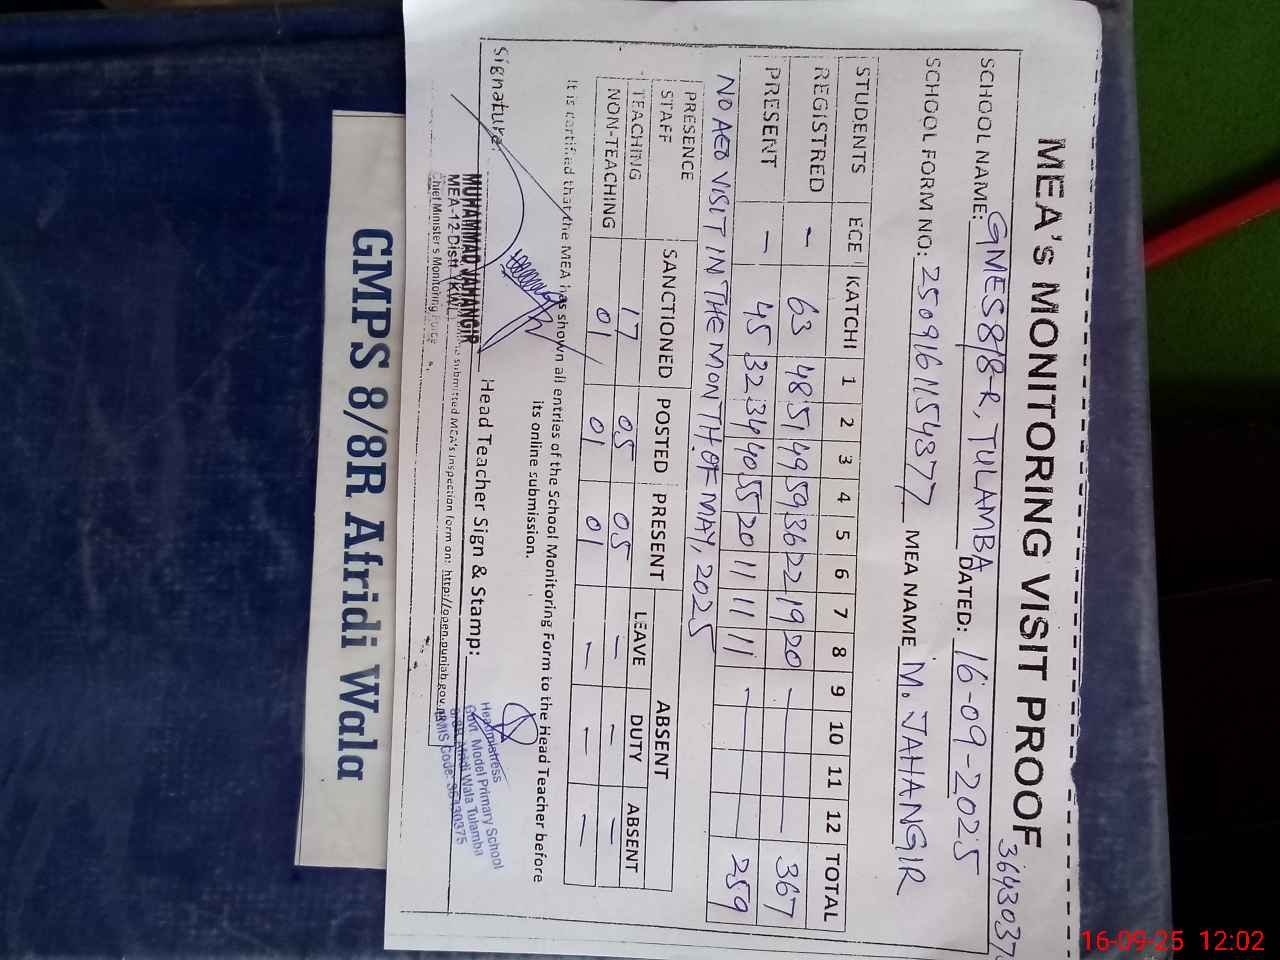 MEA's MONITORING VISIT PROOF
SCHOOL NAME: GMES 8/8-R, TULAMBA DATED: 16-09-2025
SCHOOL FORM NO: 2509161154377 MEA NAME M. JAHANGIR
STUDENTS ECE KATCHI 1 2 3 4 5 6 7 8 9 10 11 12 TOTAL
REGISTRED - 63 48 51 49 59 36 22 19 20 - - - - 367
PRESENT - 45 32 34 40 55 20 11 11 11 - - - - 259
NO AEO VISIT IN THE MONTH OF MAY, 2025
PRESENCE STAFF SANCTIONED POSTED PRESENT ABSENT
LEAVE DUTY ABSENT
TEACHING 17 05 05 - - -
NON-TEACHING 01 01 01 - - -
It is certified that the MEA has shown all entries of the School Monitoring Form to the Head Teacher before
its online submission.
Signature: Head Teacher Sign & Stamp:
MUHAMMAD JAHANGIR
MEA-12 Distt
Chief Minister's Monitoring Force
submitted MEA's inspection form on: http://open.punjab.gov.pk
Headmistress
Govt. Model Primary School
8/8R Afridi Wala Tulamba
EMIS Code: 36430375
GMPS 8/8R Afridi Wala
16-09-25 12:02